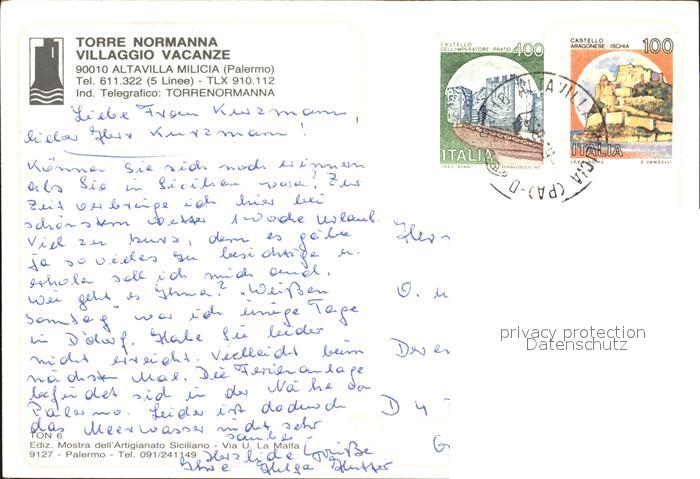 TORRE NORMANNA
VILLAGGIO VACANZE
90010 ALTAVILLA MILICIA (Palermo)
Tel. 611.322 (5 Linee) - TLX 910.112
Ind. Telegrafico: TORRENORMANNA
CASTELLO
DELL'IMPERATORE - PRATO
400
ITALIA
I.P.Z.S. ROMA
CASTELLO
ARAGONESE - ISCHIA
100
ITALIA
I.P.Z.S. ROMA E. VANGELLI
ALTAVILLA MILICIA (PA)
Liebe Frau Kurzmann,
lieber Herr Kurzmann!
Können Sie sich noch erinnern
als Sie in Sizilien war? Zur
Zeit verbringe ich hier bei
schönstem Wetter 1 Woche Urlaub.
Viel zu kurz, denn es gäbe
ja so vieles zu besichtige u.
erholen soll ich mich auch.
Wie geht es Ihnen? "Weißen
Sonntag" war ich einige Tage
in D'dorf. Habe Sie leider
nicht erreicht. Vielleicht beim
nächsten Mal. Die Ferienanlage
befindet sich in der Nähe von
Palermo. Leider ist dadurch
das Meerwasser nicht sehr
sauber.
Herzliche Grüße
Ihre Helga
Herr
O. u
D 4
privacy protection
Datenschutz
TON 6
Ediz. Mostra dell'Artigianato Siciliano - Via U. La Malfa
9127 - Palermo - Tel. 091/241149